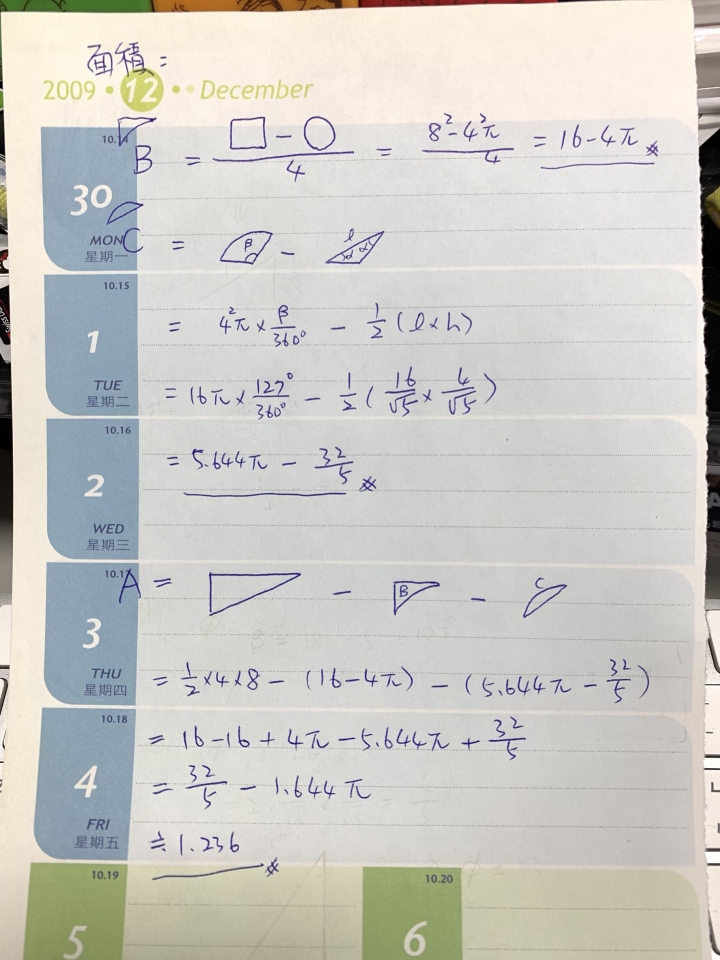 面積：
2009 • 12 • • December
10.14
B = □ - ○ / 4 = 8² - 4²π / 4 = 16 - 4π
30
MON C = β -
星期一
10.15
1 = 4²π × β/360° - 1/2 (l × h)
TUE
星期二 = 16π × 127°/360° - 1/2 ( 16/√5 × 4/√5 )
10.16
2 = 5.644π - 32/5
WED
星期三
10.17
A = - B - C
3
THU = 1/2 × 4 × 8 - (16 - 4π) - (5.644π - 32/5)
星期四
10.18
= 16 - 16 + 4π - 5.644π + 32/5
4 = 32/5 - 1.644π
FRI
星期五 ≒ 1.236
10.19 10.20
5 6